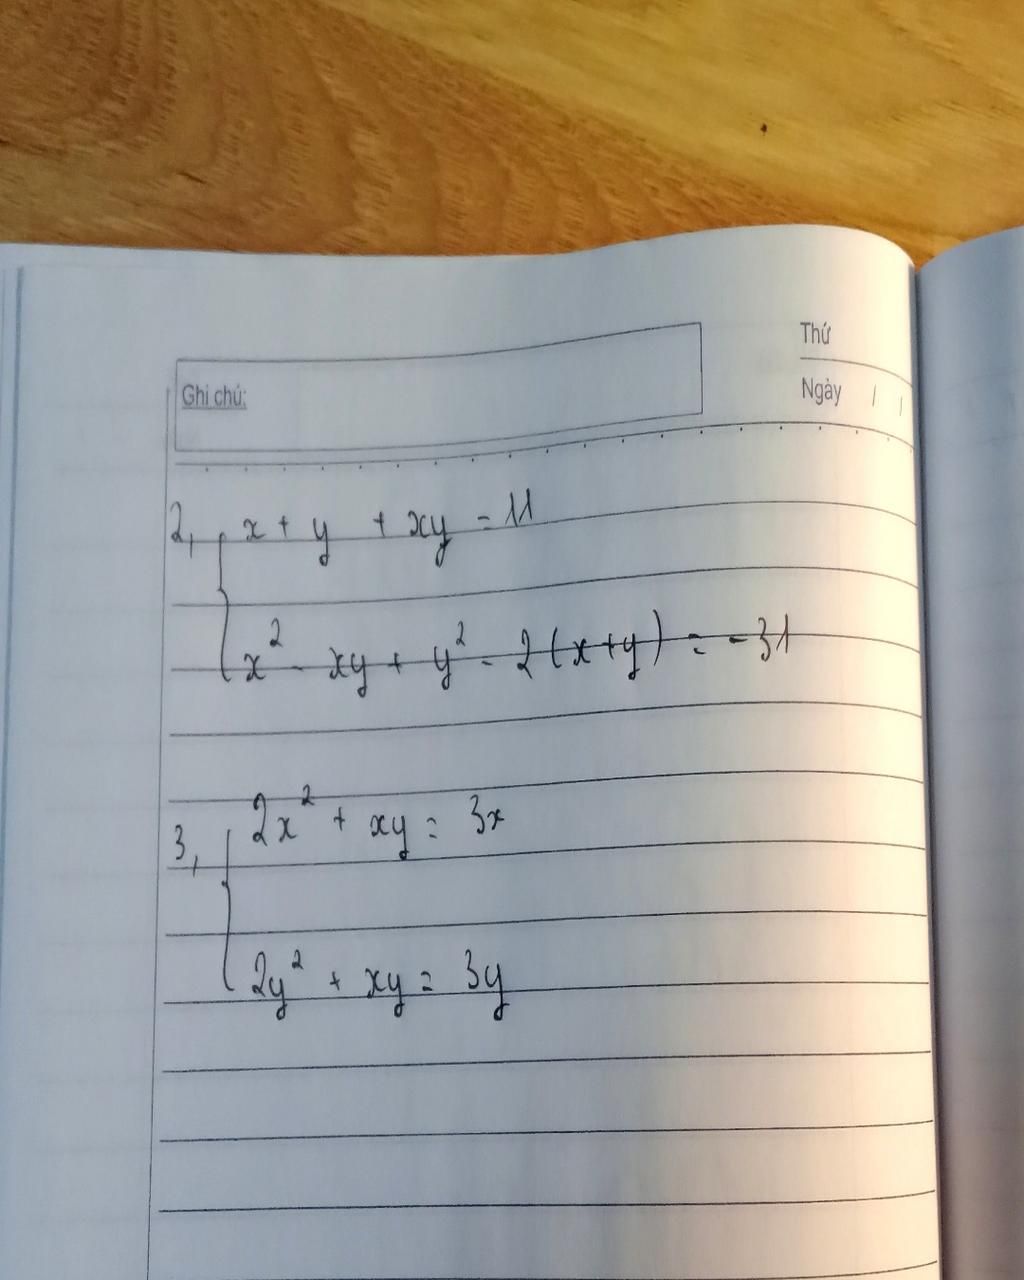 Thứ
Ghi chú:
Ngày / /
2, { x + y + xy = 11
x² - xy + y² - 2(x+y) = -31
3, { 2x² + xy = 3x
2y² + xy = 3y